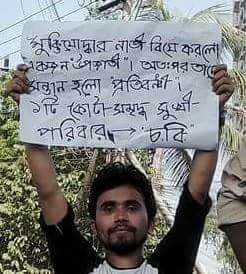 মুক্তিযোদ্ধার নাতি বিয়ে করলো
একজন "উপজাতি"। অতঃপর তাদের
সন্তান হলো "প্রতিবন্ধী"।
১টি কোটা-সমৃদ্ধ সুখী-
পরিবার → "ছবি"